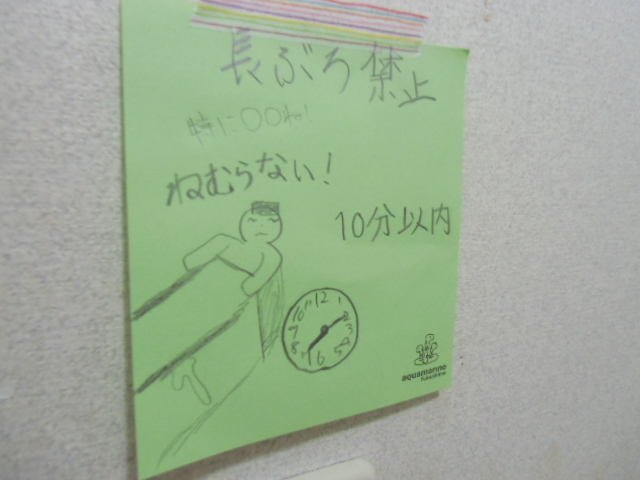 長ぶろ禁止
特に〇〇ね!
ねむらない!
10分以内
12 1 2 3 4 5 6 7 8 9 10 11
aquamarine
fukushima